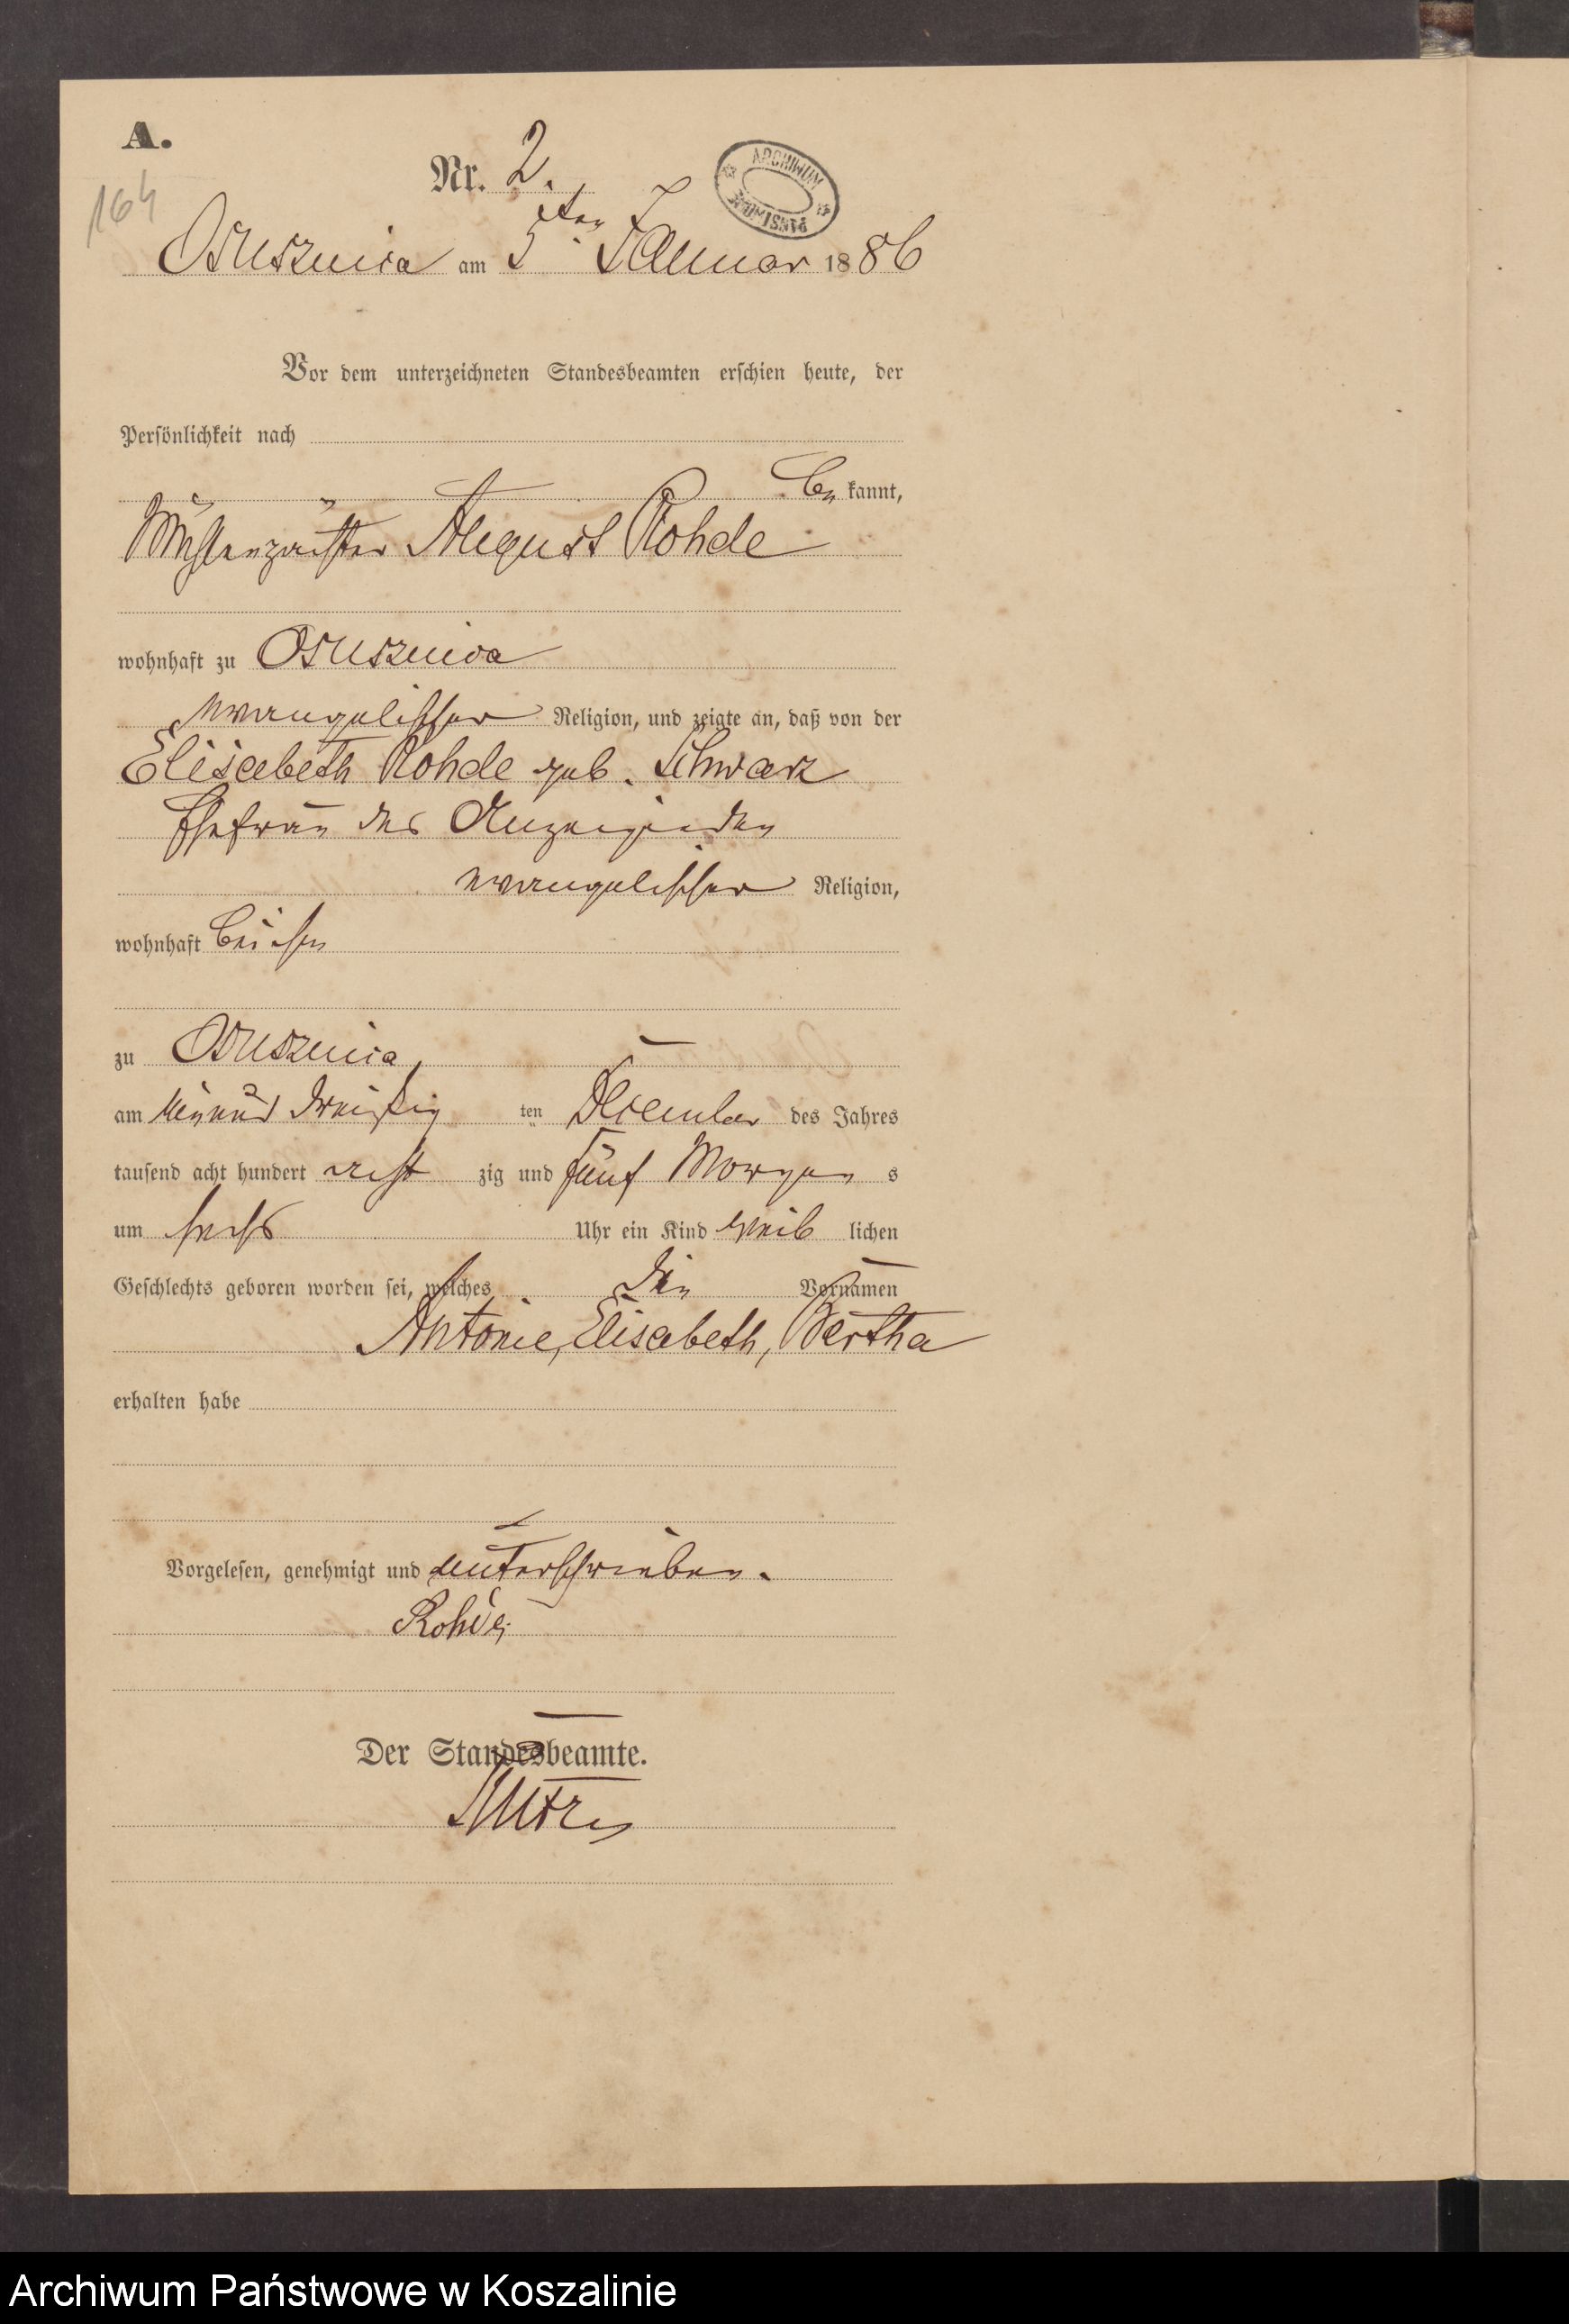 A.
Nr. 2.
164
ARCHIWUM PAŃSTWOWE
Osusznica am 5ten Januar 1886
Vor dem unterzeichneten Standesbeamten erschien heute, der
Persönlichkeit nach
be kannt,
Mühlenpächter August Rohde
wohnhaft zu Osusznica
evangelischer Religion, und zeigte an, daß von der
Elisabeth Rohde geb. Schwarz
Ehefrau des Anzeigenden
evangelischer Religion,
wohnhaft bei ihm
zu Osusznica
am ein und dreißig ten December des Jahres
tausend acht hundert acht zig und fünf Morgen s
um sechs Uhr ein Kind weib lichen
Geschlechts geboren worden sei, welches die Vornamen
Antonie, Elisabeth, Bertha
erhalten habe
Vorgelesen, genehmigt und unterschrieben.
Rohde
Der Standesbeamte.
Archiwum Państwowe w Koszalinie